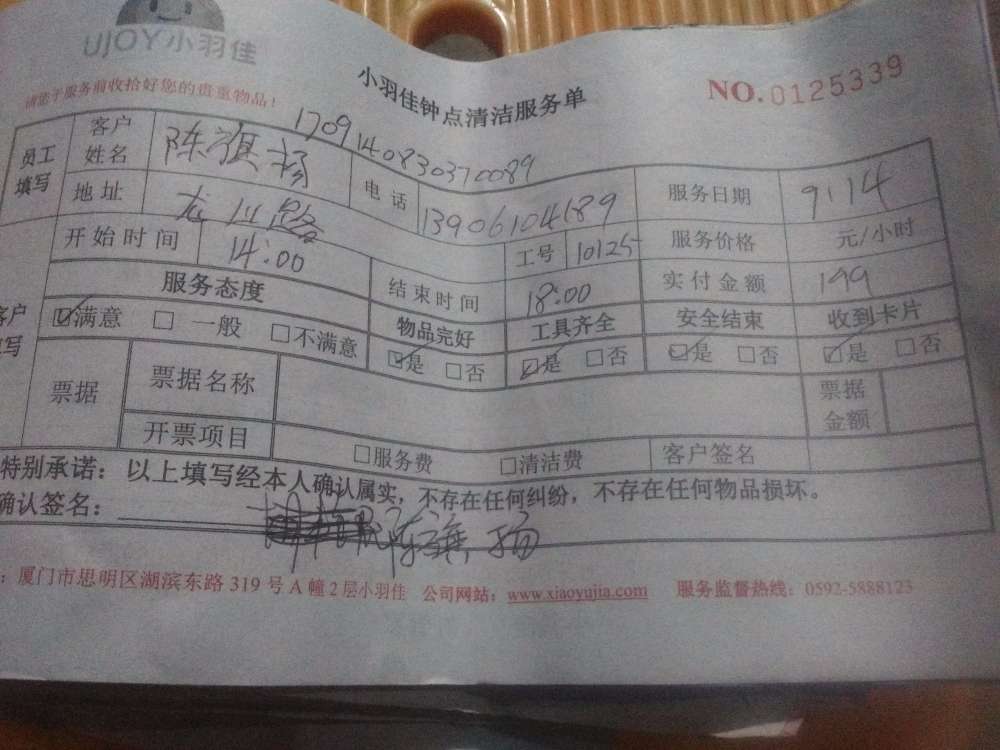 UJOY小羽佳
请您于服务前收拾好您的贵重物品！
小羽佳钟点清洁服务单
NO.0125339
170914083037 0089
员工填写 客户姓名 陈旗扬 电话 13906104189 服务日期 9.14
地址 龙山路 工号 10125 服务价格 元/小时
开始时间 14:00 结束时间 18:00 实付金额 199
服务态度 物品完好 工具齐全 安全结束 收到卡片
☑满意 □一般 □不满意 ☑是 □否 ☑是 □否 ☑是 □否 ☑是 □否
票据 票据名称 票据金额
开票项目 □服务费 □清洁费 客户签名
特别承诺：以上填写经本人确认属实，不存在任何纠纷，不存在任何物品损坏。
确认签名： 陈旗扬
：厦门市思明区湖滨东路319号A幢2层小羽佳 公司网站：www.xiaoyujia.com 服务监督热线：0592-5888123